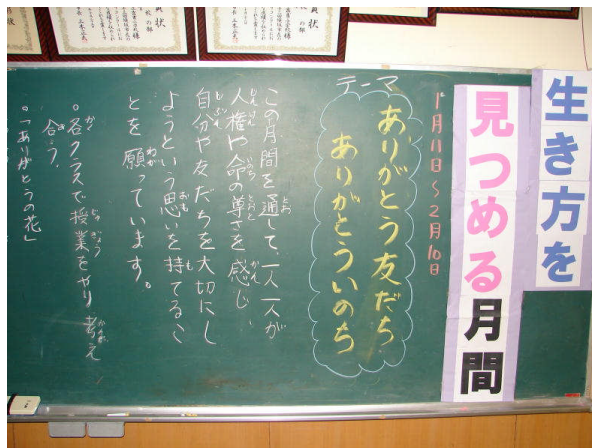 生き方を
見つめる月間
1月11日～2月10日
テーマ
ありがとう友だち
ありがとういのち
この月間を通して、一人一人が
人権や命の尊さを感じ、
自分や友だちを大切にし
ようという思いを持てるこ
とを願っています。
。各クラスで授業をやり考え
合う。
。「ありがとうの花」
賞状
賞状